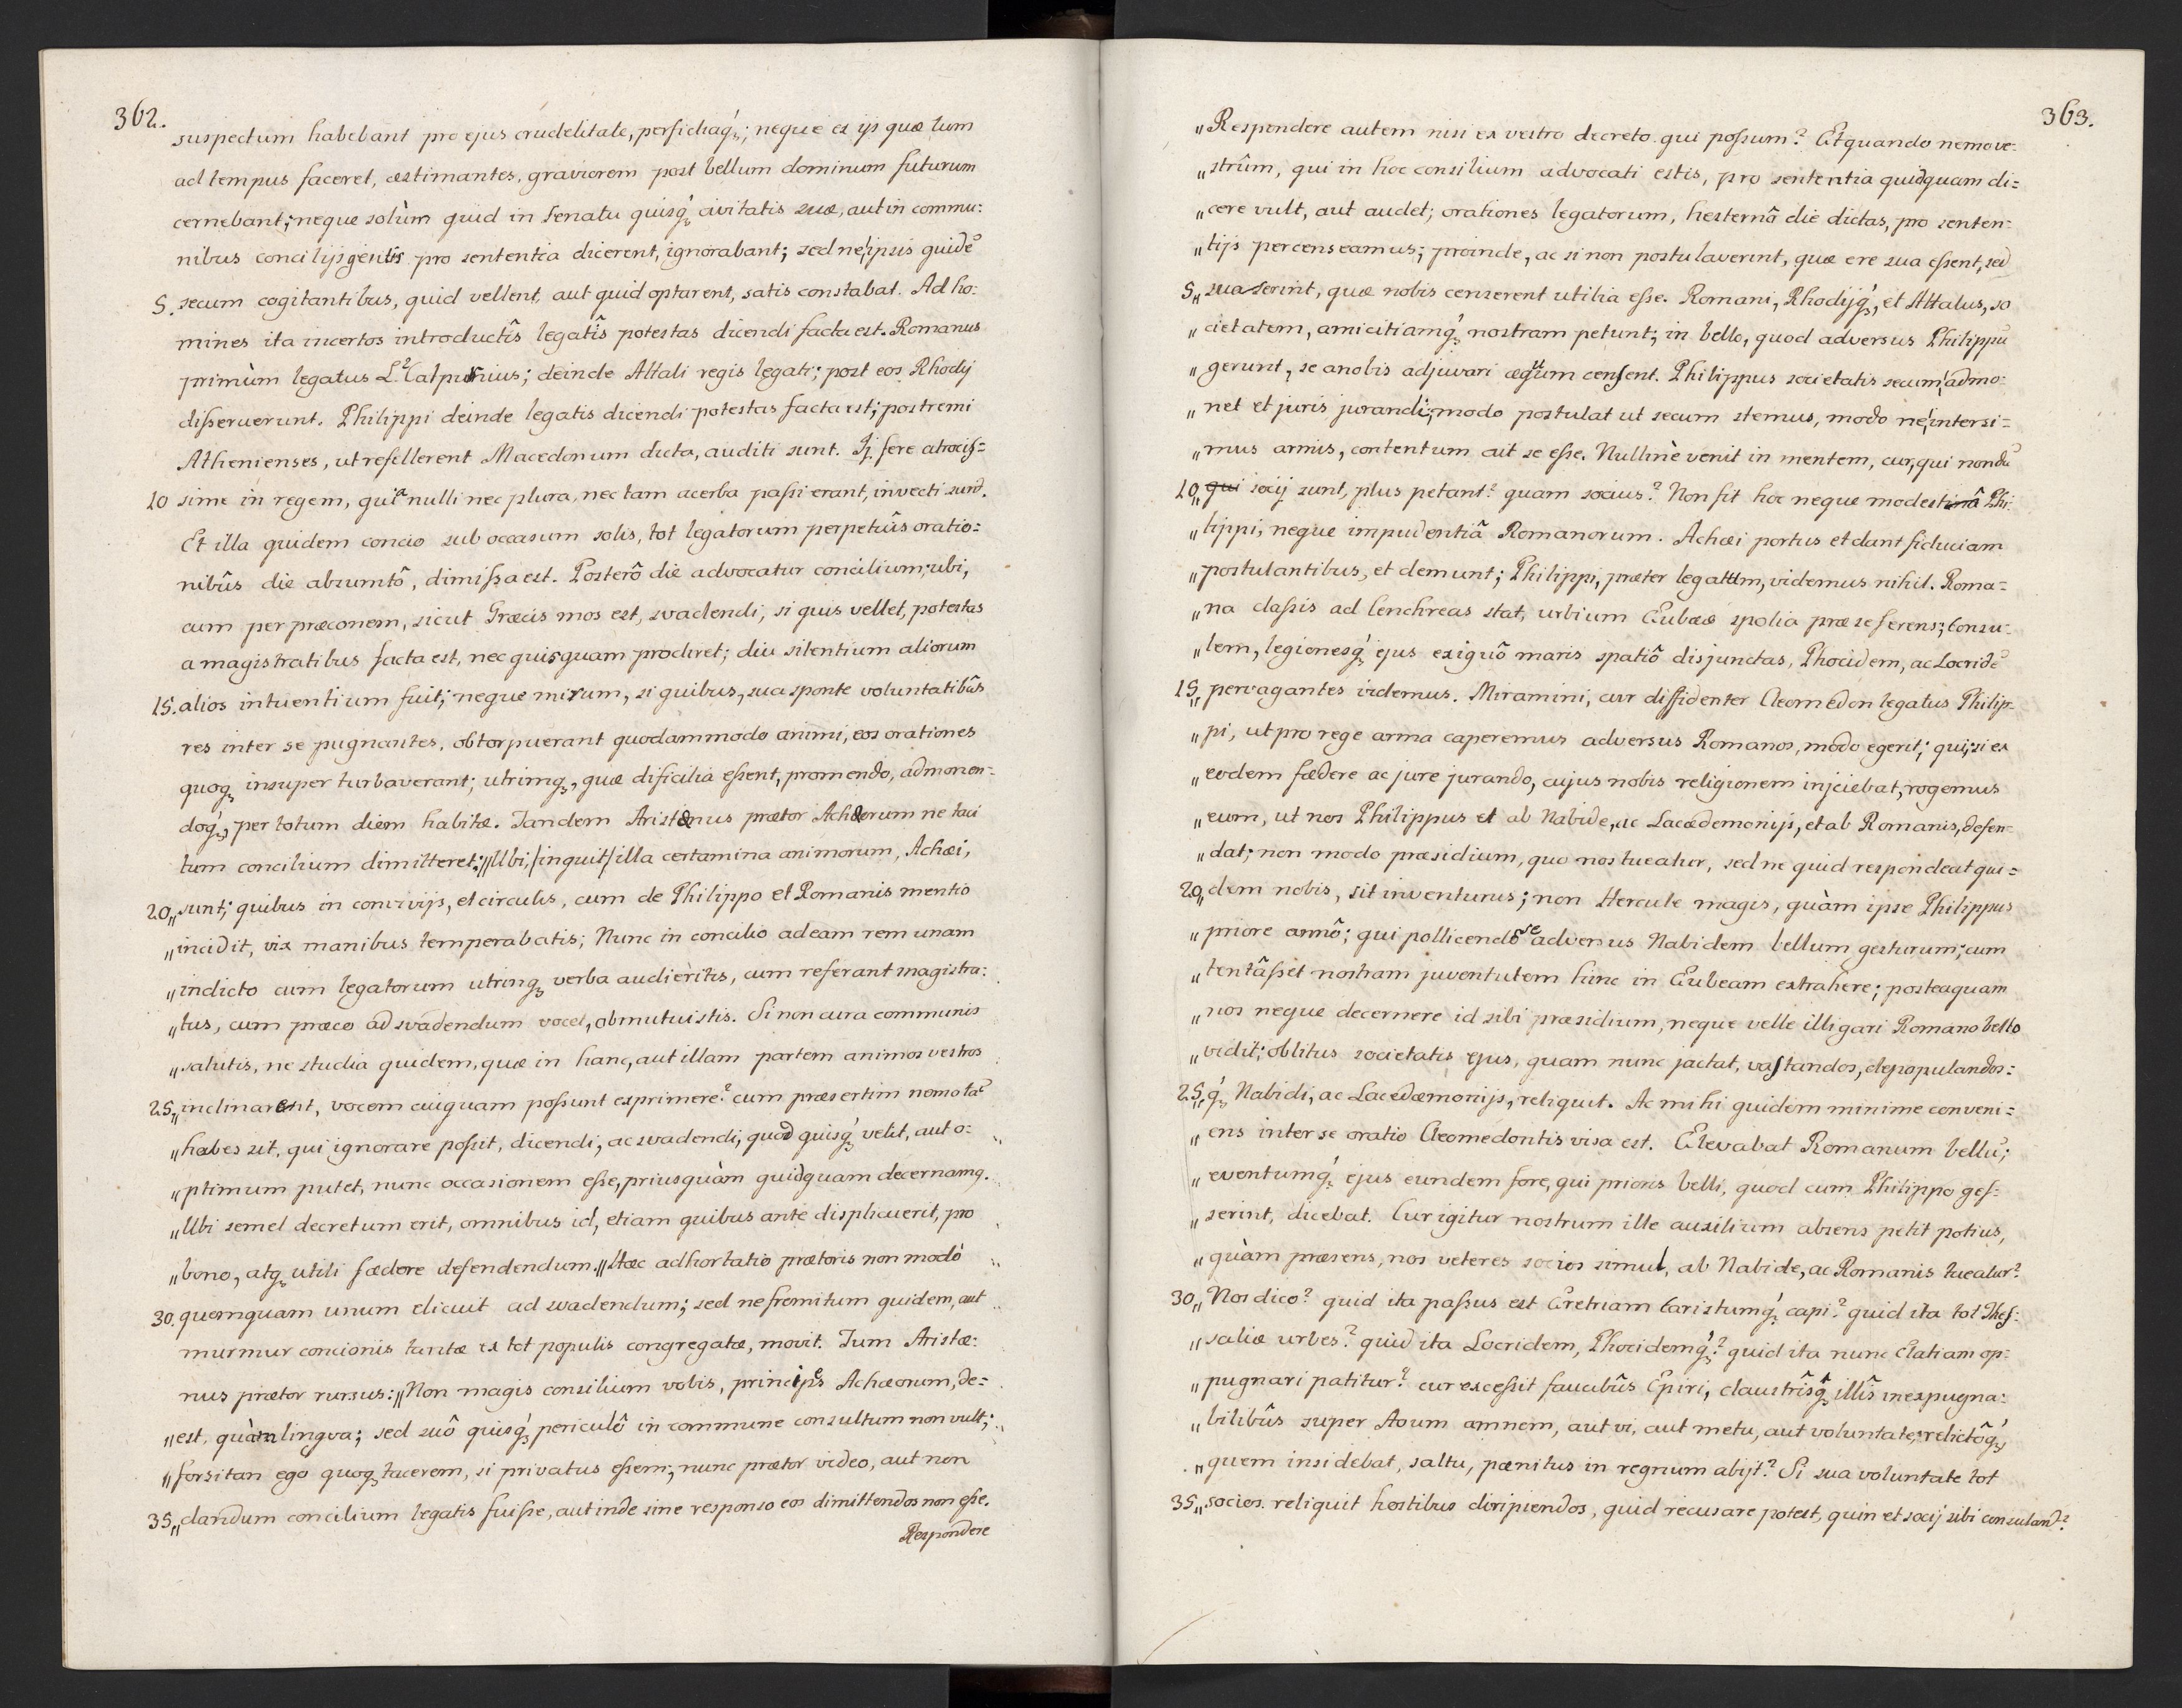 362.
suspectum habebant pro ejus crudelitate, perfidiaq́ꝫ; neque ex ijs quæ tum
ad tempus faceret, æstimantes, graviorem post bellum dominum futurum
cernebant; neque solùm quid in Senatu quisq́ꝫ civitatis suæ, aut in commu:
nibus concilijs gentis pro sententia dicerent, ignorabant; sed ne, ipsis quidē
5. secum cogitantibus, quid vellent, aut quid optarent, satis constabat. Ad ho:
mines ita incertos introductîs legatîs potestas dicendi facta est. Romanus
primùm legatus L. Calpurnius; deinde Attali regis legati; post eos Rhodij
disseruerunt. Philippi deinde legatis dicendi potestas facta est; postremi
Athenienses, ut refellerent Macedonum dicta, auditi sunt. Ij fere atrocis=
10 sime in regem, quia nulli nec plura, nec tam acerba passi erant, invecti sunt.
Et illa quidem concio sub occasum solis, tot legatorum perpetuîs oratio=
nibûs die absumtô, dimissa est. Posterô die advocatur concilium; ubi,
cum per præconem, sicut Græcis mos est, svadendi, si quis vellet, potestas
a magistratibus facta est, nec quisquam prodiret; diu silentium aliorum
15. alios intuentium fuit; neque mirum, si quibus, sua sponte voluntatibûs
res inter se pugnantes, obtorpuerant quodammodo animi, eos orationes
quoqꝫ insuper turbaverant; utrimqꝫ, quæ dificilia essent, promendo, admonen=
doq́ꝫ, per totum diem habitæ. Tandem Aristænus prætor Achæorum ne taci
tum concilium dimitteret: „Ubi, /inquit/ illa certamina animorum, Achæi,
20„ sunt; quibus in convivijs, et circulis, cum de Philippo et Romanis mentio
„ incidit, vix manibus temperabatis; Nunc in concilio ad eam rem unam
„ indicto cum legatorum utrinqꝫ verba audieritis, cum referant magistra:
„ tus, cum præco ad svadendum vocet, obmutuistis. Si non cura communis
„ salutis, ne studia quidem, quæ in hanc, aut illam partem animos vestros
25„ inclinarunt, vocem cuiquam possunt exprimere? cum præsertim nemo tā
„ habes sit, qui ignorare possit, dicendi, ac svadendi, quod quisq́ꝫ velit, aut o:
„ ptimum putet, nunc occasionem esse, priusquàm quidquam decernamꝗ.
„ Ubi semel decretum erit, omnibus id, etiam quibus ante displicuerit, pro
„ bono, atqꝫ utili fœdere defendendum.„ Hæc adhortatio prætoris non modò
30. quemquam unum elicuit ad svadendum; sed ne fremitum quidem, aut
murmur concionis tantæ ex tot populis congregatæ, movit. Tum Aristæ:
nus prætor rursus: „Non magis consilium vobis, principes Achæorum, de=
„ est, quàm lingva; sed suô quisq́ꝫ periculô in commune consultum non vult;
„ forsitan ego quoqꝫ tacerem, si privatus essem; nunc prætor video, aut non
35„ dandum concilium legatis fuisse, aut inde sine responso eos dimittendos non esse.
Respondere
363.
„ Respondere autem nisi ex vestro decreto qui possum? Et quando nemo ve:
„ strûm, qui in hoc consilium advocati estis, pro sententia quidquam di=
„ cere vult, aut audet; orationes legatorum, hesternâ die dictas, pro senten:
„ tijs percenseamus; proinde, ac si non postulaverint, quæ e re sua essent, sed
5„ suaserint, quæ nobis censerent utilia esse. Romani, Rhodijq́ꝫ, et Attalus, so
„ cietatem, amicitiamq́ꝫ nostram petunt; in bello, quod adversus Philippū
„ gerunt, se a nobis adjuvari æquum censent. Philippus societatis secum, admo:
„ net et juris jurandi; modo postulat ut secum stemus, modo ne, intersi=
„ mus armis, contentum ait se esse. Nullinè venit in mentem, cur, qui nondū
10„ socij sunt, plus petant? quam socius? Non fit hoc neque modestiâ Phi
„ lippi, neque impudentiâ Romanorum. Achæi portus et dant fiduciam
„ postulantibus, et demunt; Philippi, præter legatum, videmus nihil. Roma=
„ na classis ad Cenchreas stat, urbium Eubææ spolia præ se ferens; Consu:
„ lem, legionesq́ꝫ ejus exiguô maris spatiô disjunctas, Phocidem, ac Locridē
15„ pervagantes videmus. Miramini, cur diffidenter Cleomedon legatus Philip-
„ pi, ut pro rege arma caperemus adversus Romanos, modo egerit; qui, si ex
„ eodem fœdere ac jure jurando, cujus nobis religionem injiciebat, rogemus
„ eum, ut nos Philippus et ab Nabide, ac Lacædemonijs, et ab Romanis, defen-
„ dat; non modo præsidium, quo nos tueatur, sed ne quid respondeat qui=
20„ dem nobis, sit inventurus; non Hercule magis, quàm ipse Philippus
„ priore annô; qui pollicendô se adversus Nabidem bellum gesturum; cum
„ tentâsset nostram juventutem hinc in Eubeam extrahere; posteaquam
„ nos neque decernere id sibi præsidium, neque velle illigari Romano bello
„ vidit; oblitus societatis ejus, quam nunc jactat, vastandos, depopulandos:
25„ q́ꝫ Nabidi, ac Lacedæmonijs, reliquit. Ac mihi quidem minime conveni=
„ ens inter se oratio Cleomedontis visa est. Elevabat Romanum bellū;
„ eventumq́ꝫ ejus eundem fore, qui prioris belli, quod cum Philippo ges:
„ serint, dicebat. Cur igitur nostrum ille auxilium absens petit potius,
„ quàm præsens, nos veteres socios simul, ab Nabide, ac Romanis tueatur?
30„ Nos dico? quid ita passus est Eretriam Caristumq́ꝫ capi? quid ita tot Thes:
„ saliæ urbes? quid ita Locridem, Phocidemq́ꝫ? quid ita nunc Elatiam op:
„ pugnari patitur? cur excessit faucibûs Epiri, claustrîsq́ꝫ illîs inexpugna:
„ bilibûs super Aoum amnem, aut vi, aut metu, aut voluntate; relictôq́ꝫ,
„ quem insidebat, saltu, pænitus in regnum abijt? Si sua voluntate tot
35„ socios reliquit hostibus diripiendos, quid recusare potest, quin et socij sibi consulant?